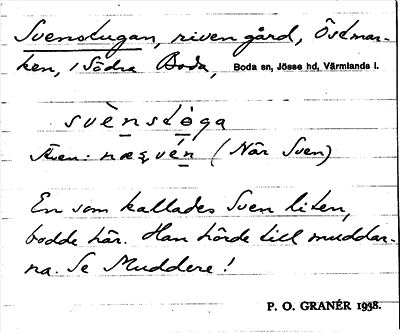 Svenstugan, riven gård, Östmar-
ken, i Södra Boda, Boda sn, Jösse hd, Värmlands l.
svènstòga
Även: næʂvén (När Sven)
En som kallades Sven liten,
bodde här. Han hörde till muddar-
na. Se Muddere!
P. O. GRANÉR 1938.